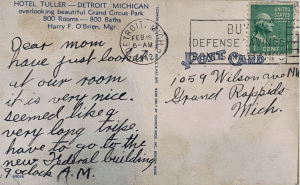 HOTEL TULLER — DETROIT, MICHIGAN
overlooking beautiful Grand Circus Park
800 Rooms — 800 Baths
Harry F. O'Brien, Mgr.
Dear mom
have just looked
at our room
it is very nice.
seemed like a
very long trip.
have to go to the
new Federal building
9 o'clock A.M.
DETROIT, MICH.
FEB 18
6-AM
BUY
DEFENSE
POST CARD
1 CENT
1059 Wilson ave NW
Grand Rapids
Mich.